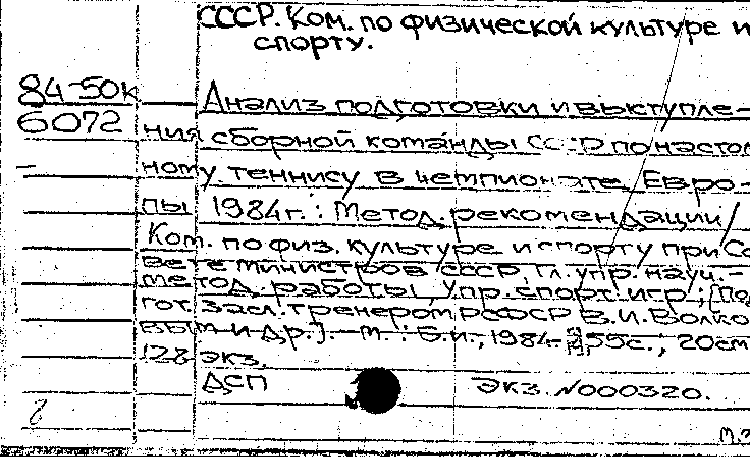 СССР. Ком. по физической культуре и
спорту.
84-50к
6072
Анализ подготовки и выступле-
ния сборной команды СССР по настол
ному теннису в чемпионате Евро-
пы 1984г.: Метод. рекомендации /
Ком. по физ. культуре и спорту при Со
вете Министров СССР, Гл. упр. науч.-
метод. работы, Упр. спорт. игр; [Под
гот. засл. тренером РСФСР В.И. Волко
вым и др.]. - М. : Б.и., 1984. - 55с.; 20см
128 экз.
ДСП
Экз. N000320.